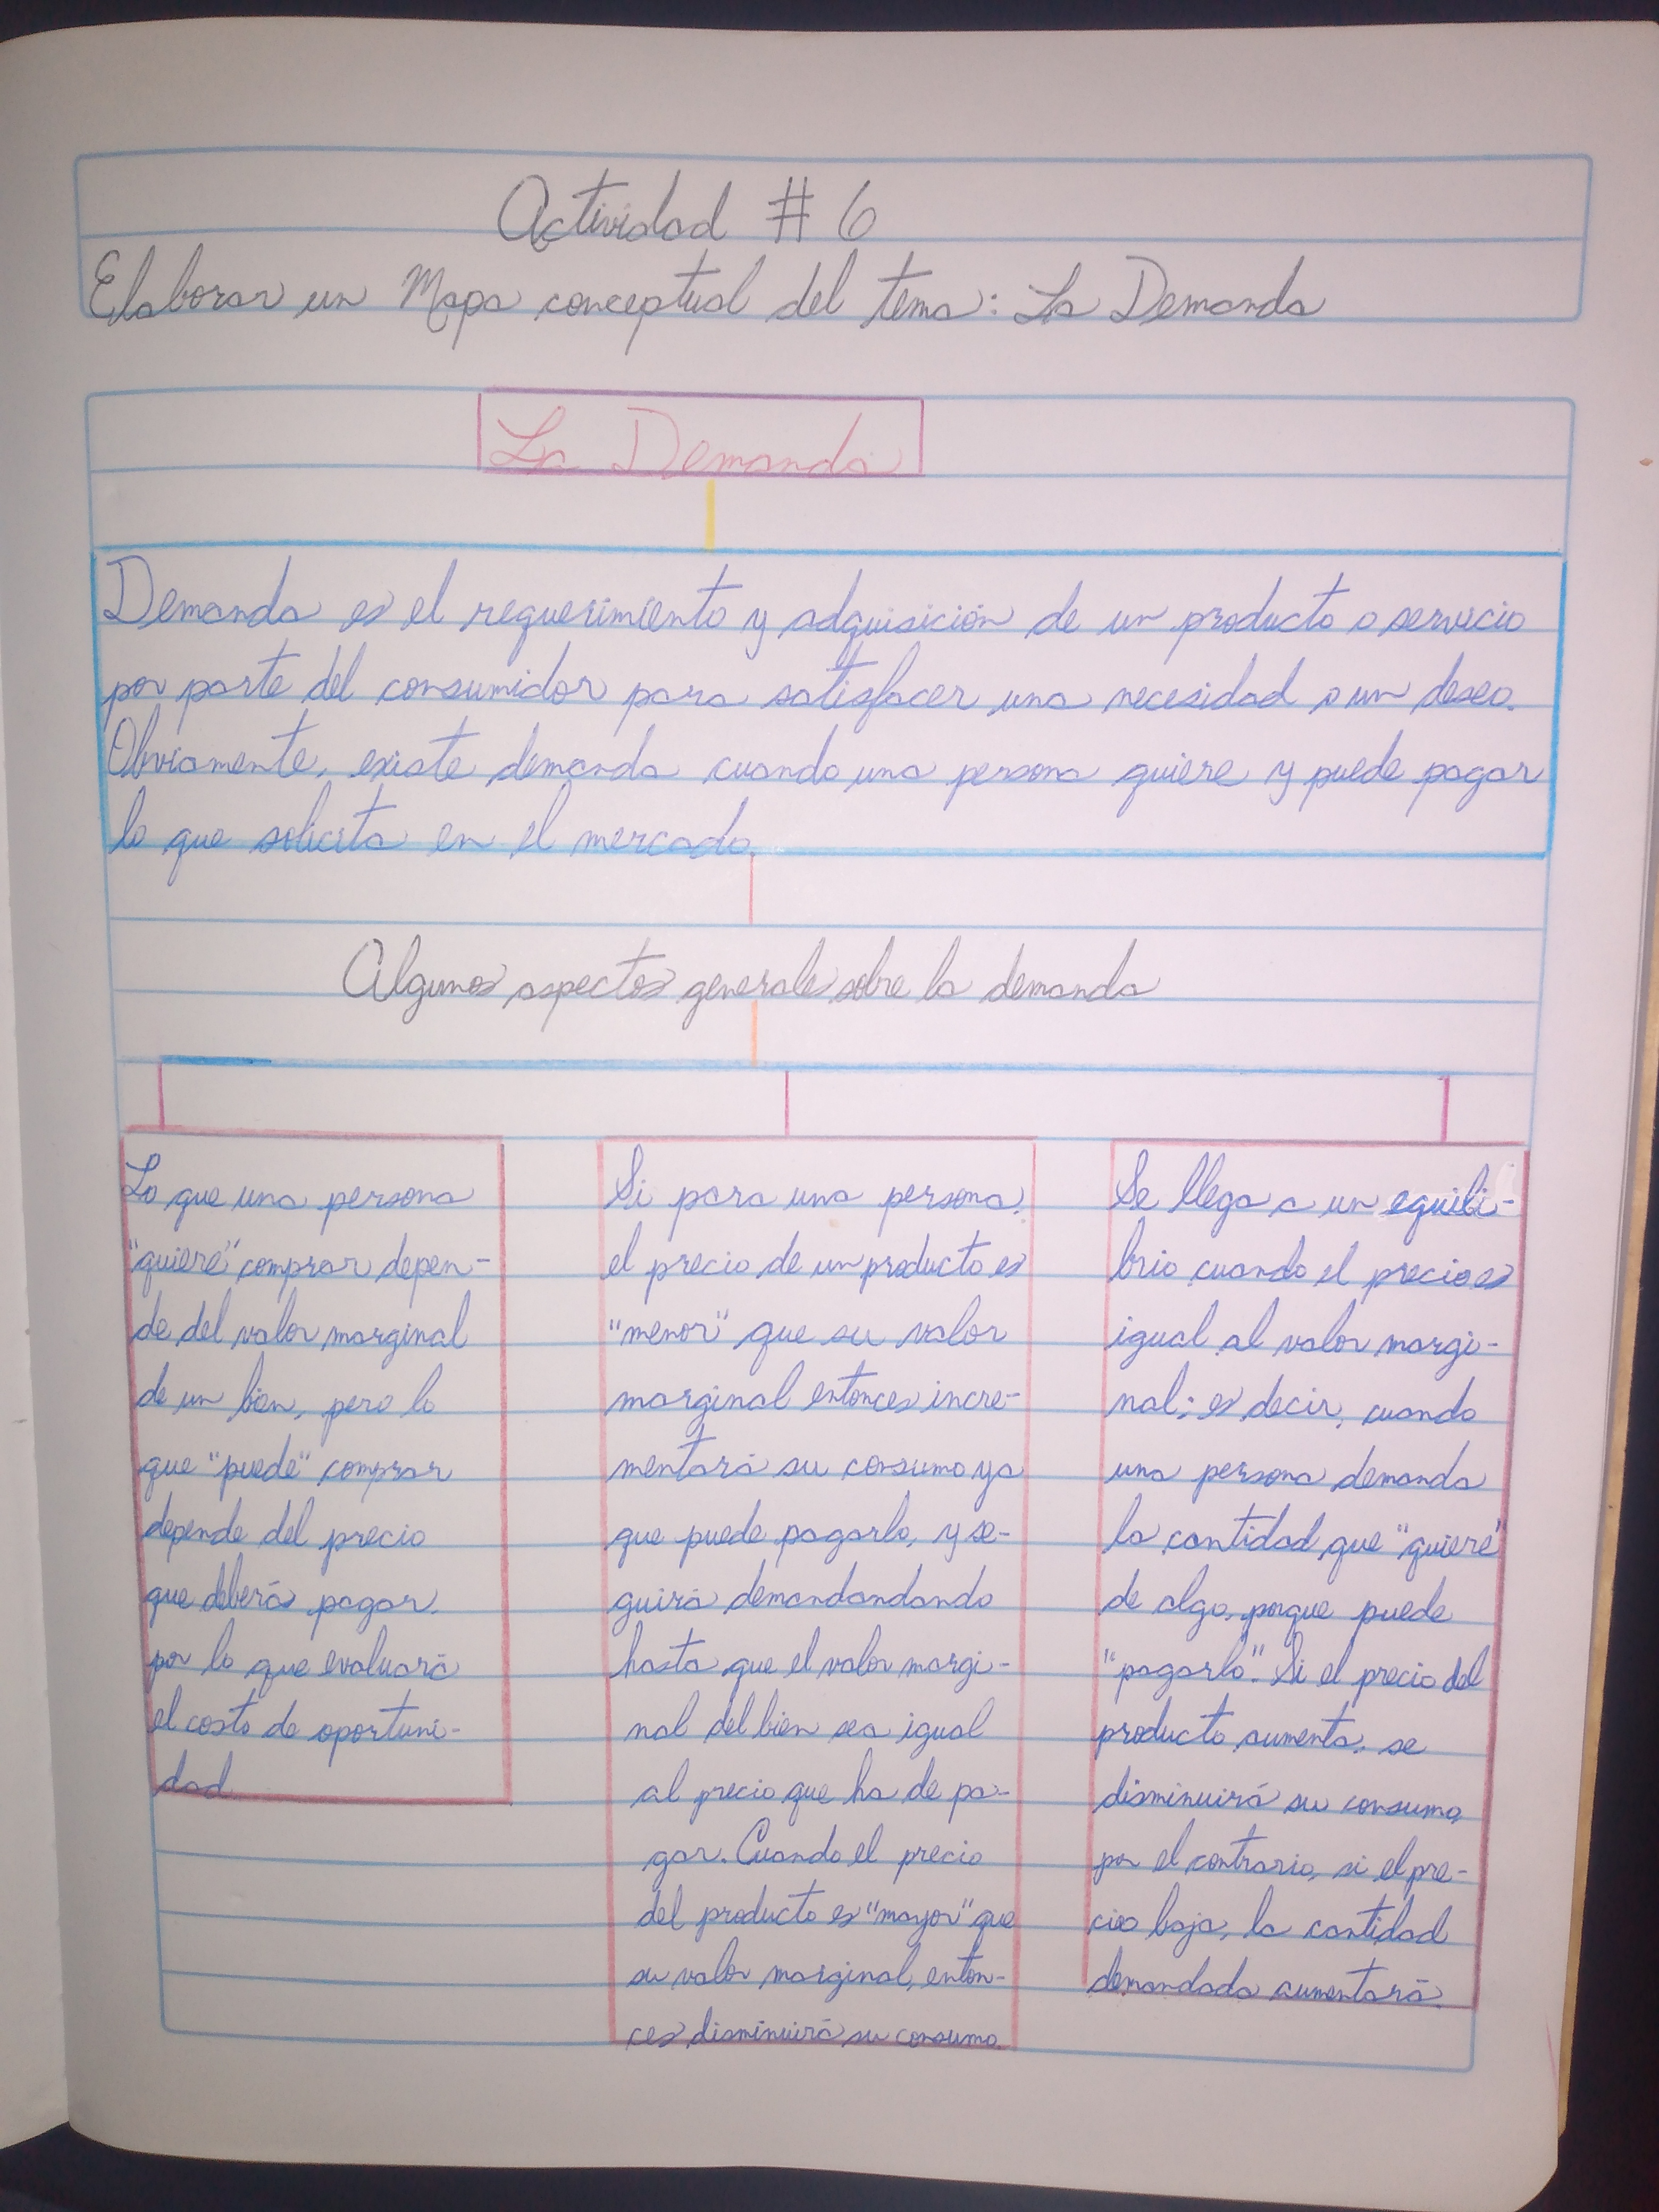 Actividad # 6
Elaborar un Mapa conceptual del tema: La Demanda
La Demanda
Demanda es el requerimiento y adquisición de un producto o servicio
por parte del consumidor para satisfacer una necesidad o un deseo.
Obviamente, existe demanda cuando una persona quiere y puede pagar
lo que solicita en el mercado.
Algunos aspectos generales sobre la demanda
Lo que una persona
"quiere" comprar depen-
de del valor marginal
de un bien, pero lo
que "puede" comprar
depende del precio
que deberás pagar,
por lo que evaluará
el costo de oportuni-
dad
Si para una persona,
el precio de un producto es
"menor" que su valor
marginal entonces incre-
mentará su consumo ya
que puede pagarlo, y se-
guirá demandandando
hasta que el valor margi-
nal del bien sea igual
al precio que ha de pa-
gar. Cuando el precio
del producto es "mayor" que
su valor marginal, enton-
ces disminuirá su consumo.
Se llega a un equili-
brio cuando el precio es
igual al valor margi-
nal; es decir, cuando
una persona demanda
la cantidad que "quiere"
de algo, porque puede
"pagarlo". Si el precio del
producto aumenta, se
disminuirá su consumo,
por el contrario, si el pre-
cio baja, la cantidad
demandada aumentará.